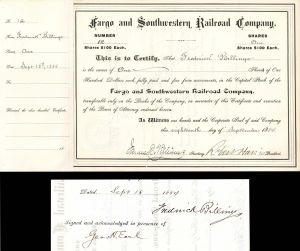 Fargo and Southwestern Railroad Company.
NUMBER
12
Shares $100 Each.
SHARES
One
Shares $100 Each.
This is to Certify, That Frederick Billings
is the owner of One Shares of One
Hundred Dollars each, fully paid and free from assessments, in the Capital Stock of the
Fargo and Southwestern Railroad Company,
transferable only on the Books of the Company, on surrender of this Certificate and execution
of the Power of Attorney endorsed hereon.
In Witness our hands and the Corporate Seal of said Company
this eighteenth day of September
Secretary
President
No. 12
Frederick Billings
One
Sept 18th
Received the above described Certificate.
Dated, Sept 18
Frederick Billings
Signed and acknowledged in presence of
Geo. H. Earl